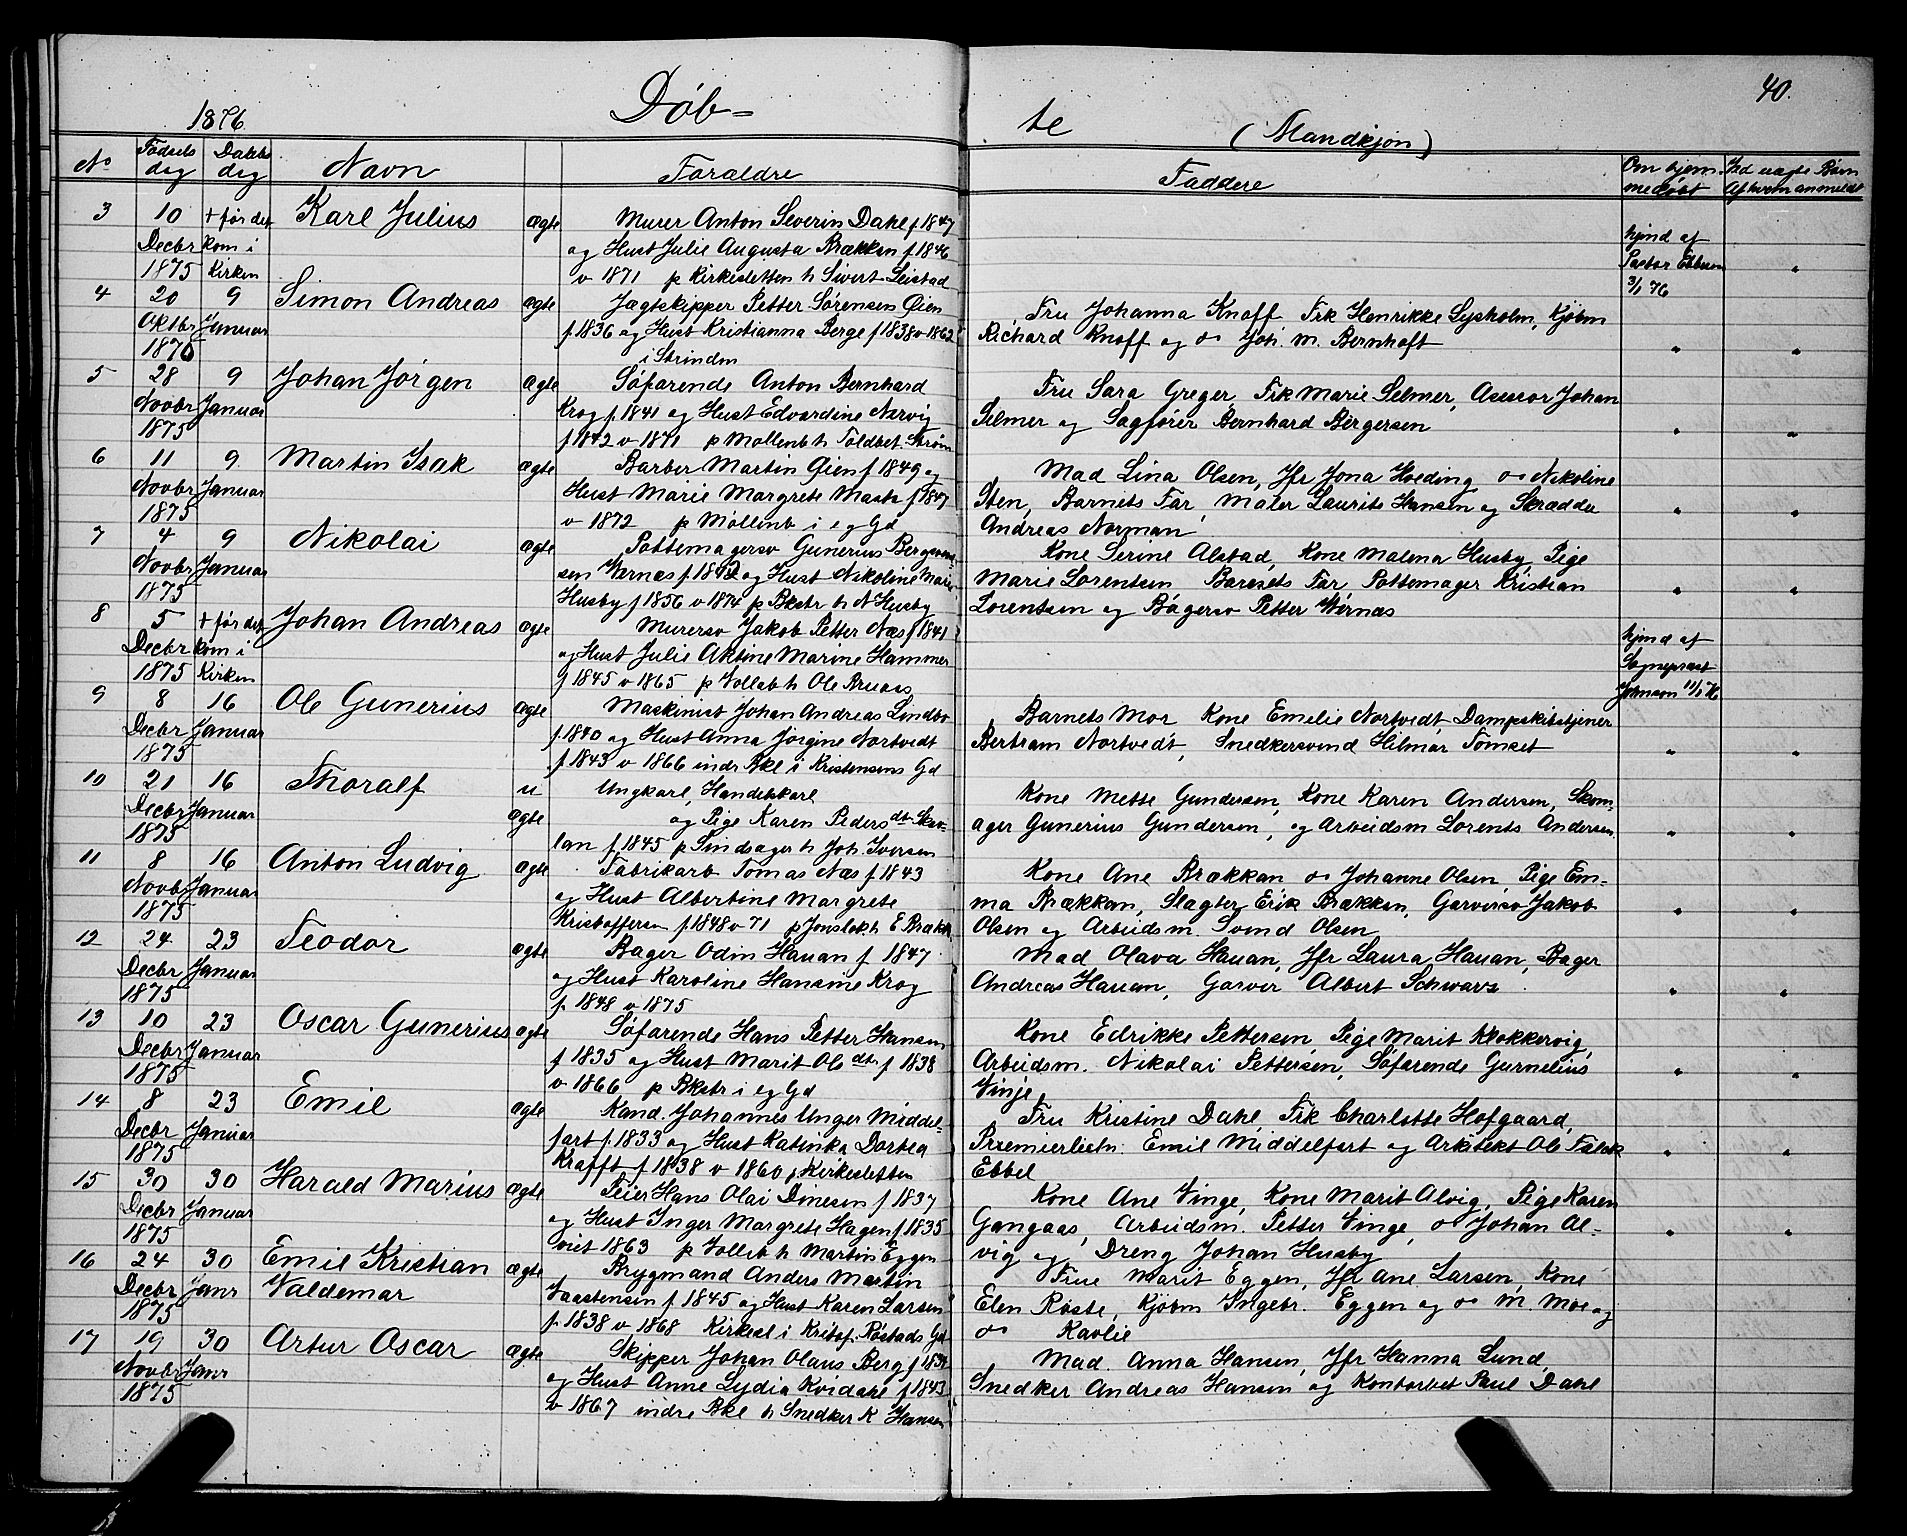 40.
1876. Døb- te (Mandkjøn)
No Fødsels dag Daabs dag Navn Forældre Faddere Om hjem- medøbt Ved uægte Børn Af hvem anmeldt
3 10 Decbr 1875 + før det kom i Kirken Karl Julius ægte Murer Anton Severin Dahl f 1847
og Hust Julie Augusta Brækkan f. 1846
v 1871 p Kirkesletten h Sivert Leistad
hjmd af
Pastor Ebbesen
3/1 76 "
4 20 Oktbr 1875 9 Januar Simon Andreas ægte Jægtskipper Petter Sørensen Øien
f. 1836 og Hust Kristianna Berge f 1838 v 1862
i Strinden
Fru Johanna Knoff Frk Henrikke Lysholm, Kjøbm
Richard Knoff og do Joh. M. Bernhoft " "
5 28 Novbr 1875 9 Januar Johan Jørgen ægte Søfarende Anton Bernhard
Krog f. 1841 og Hust Edvardine Nervig
f 1842 v 1871 p Møllenb h Toldbet. Strøm
Fru Sara Greger, Frk Marie Selmer, Asessor Johan
Selmer og Sagfører Bernhard Bergersen " "
6 11 Novbr 1875 9. Januar Martin Isak ægte Barber Martin Øien f 1849 og
Hust Marie Margrete f 1847
v 1872 p Møllenb i eg Gd
Mad Lina Olsen, Jfr Jona Hveding do Nikoline
Sten, Barnets Far, Maler Laurits Hansen og Skrædder
Andreas Norman " "
7 4 Novbr 1875 9 Januar Nikolai ægte Pottemagersv Gunerius
sen Vernæs f. 1842 og Hust Nikoline Marie
Husby f 1856 v 1874 p Bkstr h N Husby
Kone Serine Alstad, Kone Malena Husby, Pige
Marie Lorentsen Barnets Far Pottemager Kristian
Lorentsen og Bagersv Petter Vernæs " "
8 5 Decbr 1875 + før det kom i Kirken Johan Andreas ægte Murersv Jakob Petter Næs f 1841
og Hust Julie Aktine Marine Hammer
f 1845 v 1865 p Vollab h Ole Bruaas
hjmd af
Sognepræst
Johnson 11/1 76
9 8 Decbr 1875 16 Januar Ole Gunerius ægte Maskinist Johan Andreas Lindbo
f. 1840 og Hust Anna Jørgine Nortvedt
f 1843 v 1866 indr Bkl i Kristensens Gd
Barnets Mor, Kone Emelie Nortvedt, Dampskibstjener
Bertram Nortvedt, Snedkersvend Hilmar Tomset " "
10 21 Decbr 1875 16 Januar Thoralf u ægte Ungkarl, Handelskarl
og Pige Karen Pedersdt Skav-
lan f 1845 p Sindsager h Joh. Iversen
Kone Mette Gundersen, Kone Karen Andersen, Skom-
ager Gunerius Gundersen, og Arbeidsm Lorents Andersen " "
11 8 Novbr 1875 16 Januar Anton Ludvig ægte Fabrikarb Tomas Næs f 1843
og Hust Albertine Margrete
Kristoffersen f. 1848 v 71 p Jonsløk h E Brækk
Kone Ane Brækkan do Johanne Olsen, Pige Em-
ma Brækkan, Slagter Erik Brækkan, Garversv Jakob
Olsen og Arbeidsm. Svend Olsen " "
12 24 Decbr 1875 23 Januar Teodor ægte Bager Odin Hauan f. 1847
og Hust Karoline Hansine Krog
f. 1848 v 1875
Mad Olava Hauan, Jfr Laura Hauan, Bager
Andreas Hauan, Garver Albert Schwars " "
13 10 Decbr 1875 23 Januar Oscar Gunerius ægte Søfarende Hans Petter Hansen
f 1835 og Hust Marit Oledt f 1838
v 1866 p Bkstr i eg Gd
Kone Edrikke Pettersen Pige Marit Klokkervig,
Arbeidsm. Nikolai Pettersen, Søfarende Gurnelius
Vinje " "
14 8 Decbr 1875 23 Januar Emil ægte Kand. Johannes Unger Middel-
fart f. 1833 og Hust Katinka Dortea
Krafft f 1838 v 1860 p Kirkesletten
Fru Kristine Dahl, Frk Charlotte Hofgaard,
Premierlietn. Emil Middelfart og Arkitekt Ole Falck
Ebbel " "
15 30 Decbr 1875 30 Januar Harald Marius ægte Feier Hans Olai Dinesen f 1837
og Hust Inger Margrete Hagen f 1835
viet 1863 p Vollab h Martin Eggen
Kone Ane Vinge, Kone Marit Alvig, Pige Karen
Gangaas, Arbeidsm. Petter Vinge, do Johan Al-
vig og Dreng Johan Husby " "
16 24 Decbr 1875 30 Janr Emil Kristian
Valdemar ægte Brygmand Anders Martin
Vaastensen f. 1845 og Hust Karen Larsen
f. 1838 v 1868 Kirkesl i Kristof. Røstads Gd
Frue Marit Eggen, Jfr Ane Larsen, Kone
Elen Røste, Kjøbm Ingebr. Eggen og do M. Moe og
do Kavlie
17 19 Novbr 1875 30 Janr Artur Oscar ægte Skipper Johan Olaus Berg f 1834
og Hust Anne Lydia Kvidare f 1843
v 1867 indre Bkl h Snedker K Hansen
Mad. Anna Hansen, Jfr Hanna Lund,
Snedker Andreas Hansen og Kontorbet Paul Dahl